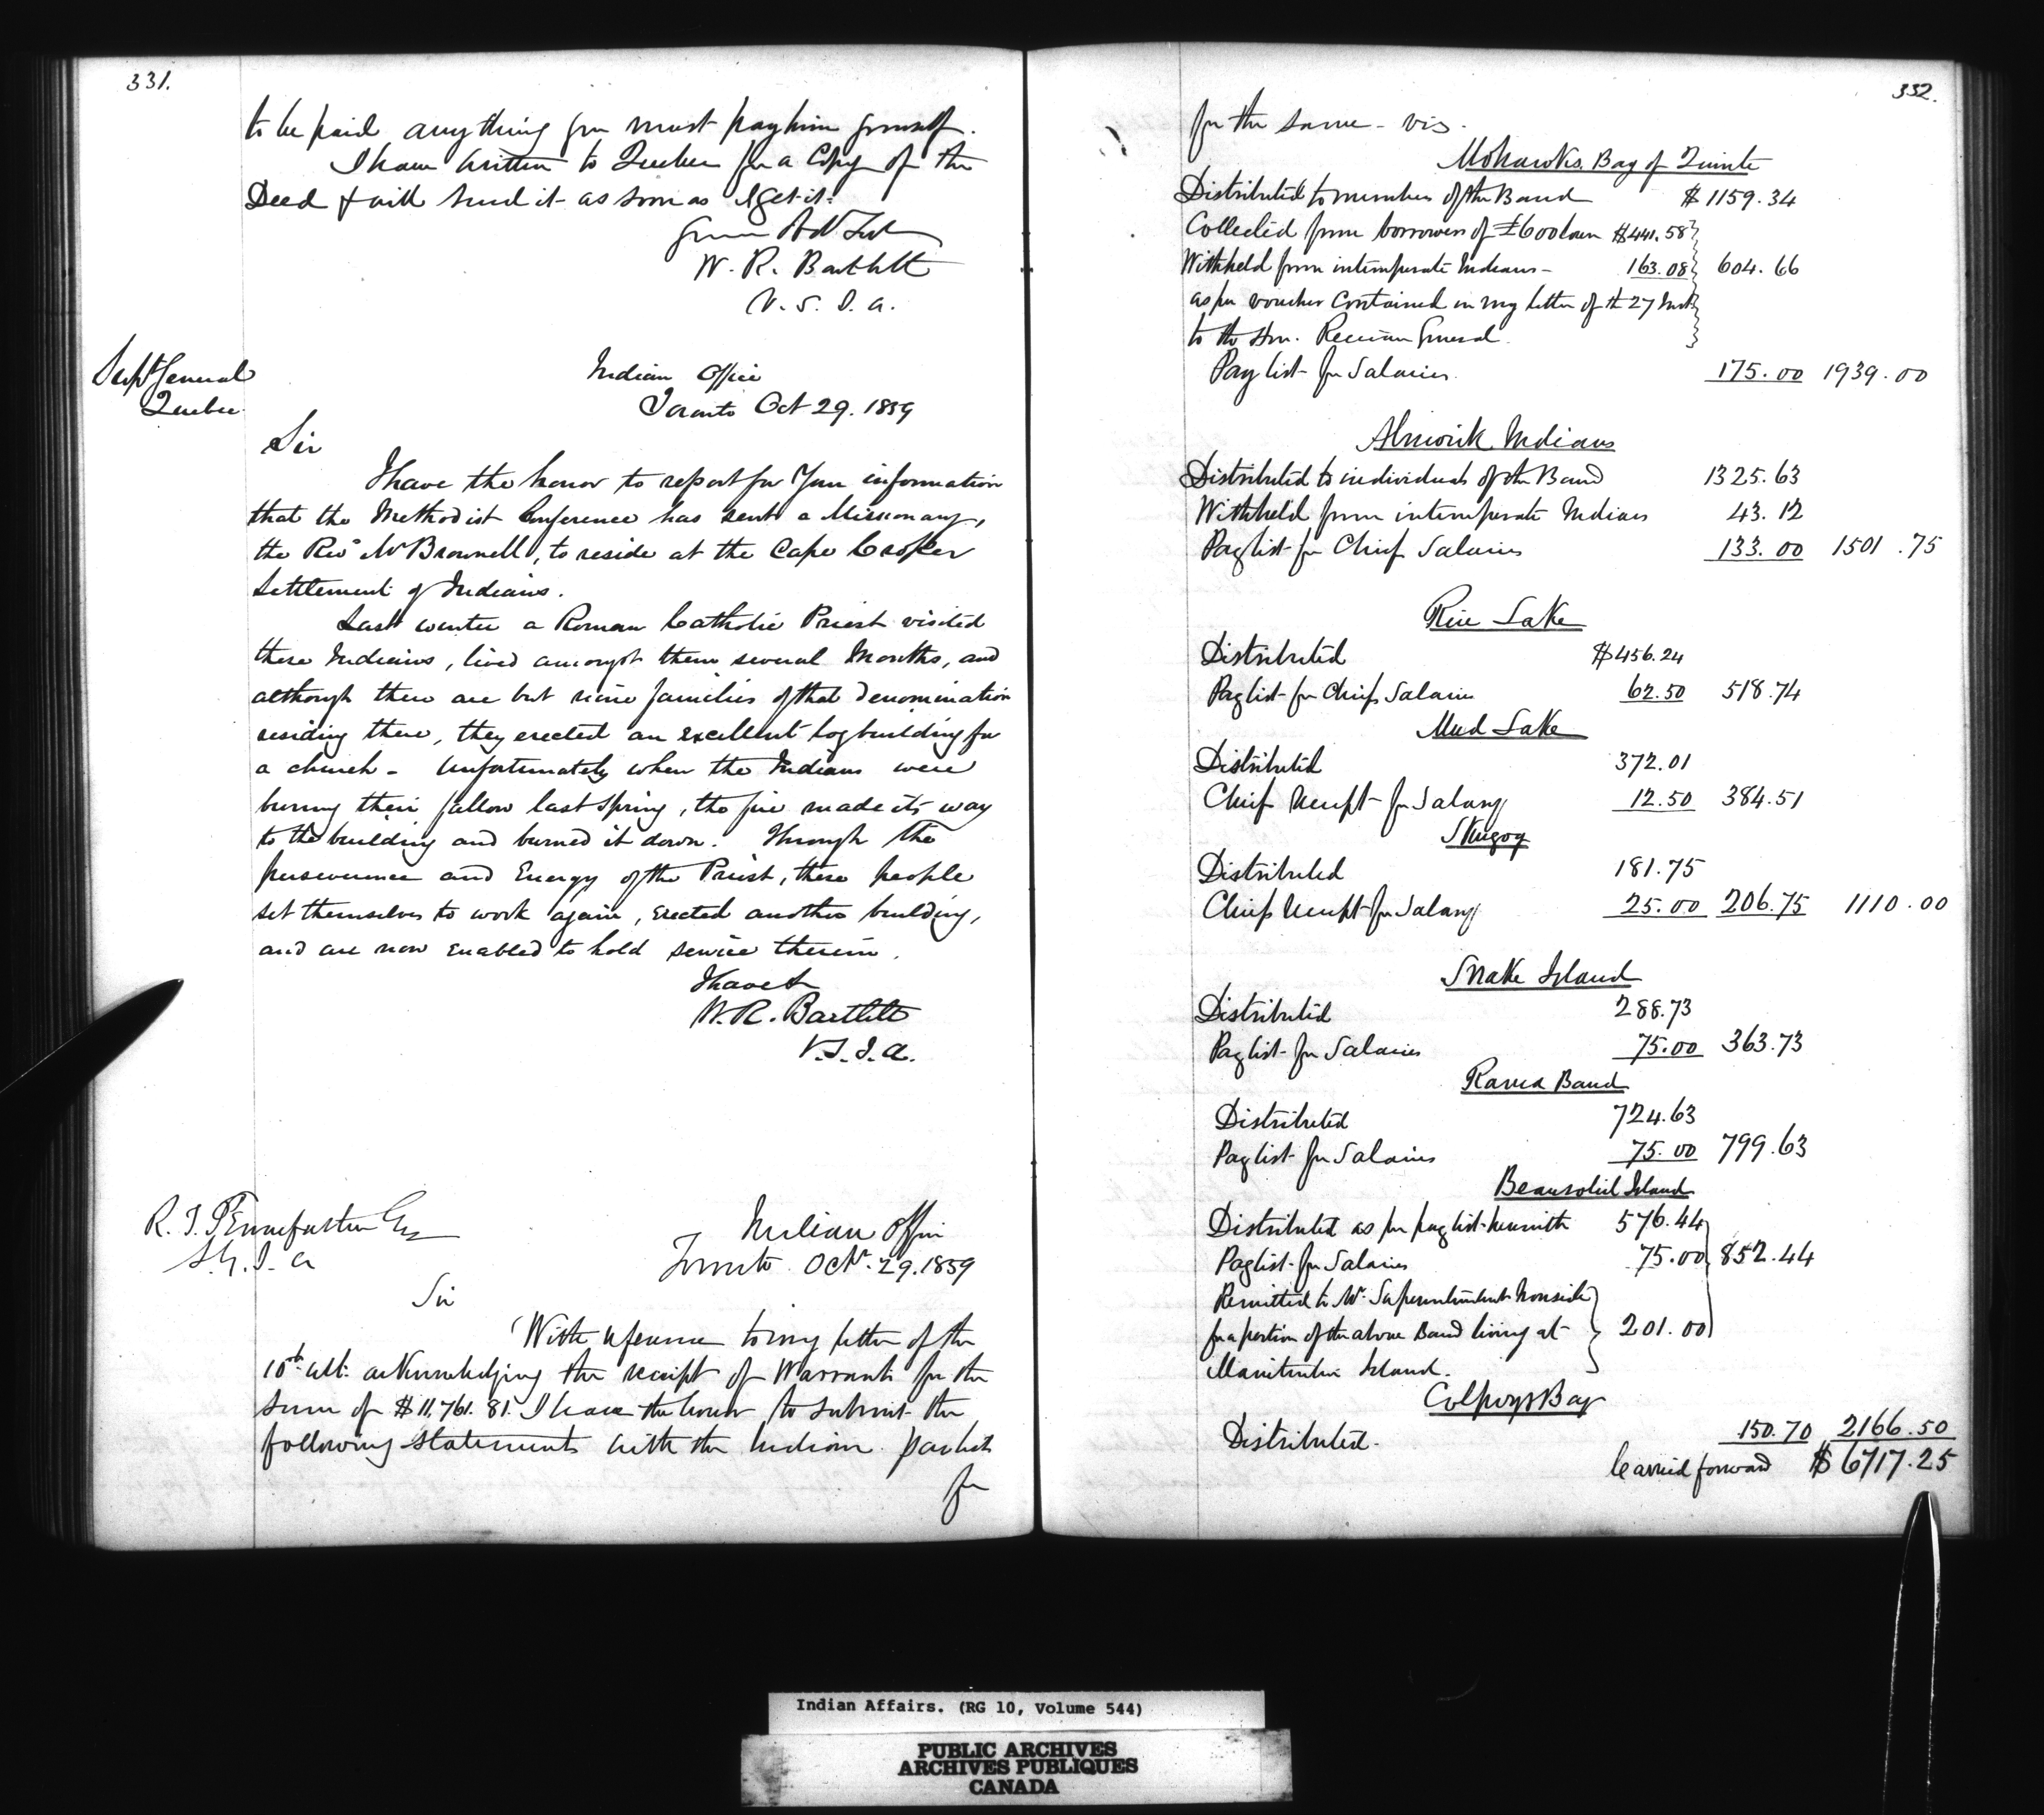 331.
to be paid anything you must pay him yourself.
I have written to Quebec for a Copy of the
Deed & will send it as soon as I get it.
Your Obt Svt
W. R. Bartlett
V. S. I. A.
Supt General
Quebec
Indian Office
Toronto Oct 29. 1859
Sir
I have the honor to report for Your information
that the Methodist Conference has sent a Missionary,
the Revd Mr Brownell, to reside at the Cape Croker
Settlement of Indians.
Last winter a Roman Catholic Priest visited
these Indians, lived amongst them several Months, and
although there are but nine families of that denomination
residing there, they erected an excellent log building for
a church - Unfortunately when the Indians were
burning their fallow last spring, the fire made its way
to the building and burned it down. Through the
perseverance and Energy of the Priest, these people
set themselves to work again, erected another building,
and are now enabled to hold service therein.
I have &
W. R. Bartlett
V. S. I. A.
R. T. Pennefather Esq
S. G. I. A
Indian Office
Toronto Octr. 29. 1859
Sir
With reference to my letter of the
10th ult: acknowledging the receipt of Warrants for the
sum of $11,761.81. I have the honor to submit the
following statement with the Indian paylists
for
332.
for the same - viz.
Mohawks Bay of Quinte
Distributed to members of the Band $1159.34
Collected from borrowers of £600 loan $441.58
Withheld from intemperate Indians - 163.08 604.66
as per voucher contained in my letter of th 27 Inst
to the Hon. Receiver General
Pay list for Salaries. 175.00 1939.00
Alnwick Indians
Distributed to individuals of the Band 1325.63
Withheld from intemperate Indians 43.12
Paylist for Chiefs Salaries 133.00 1501.75
Rice Lake
Distributed $456.24
Paylist for Chiefs Salaries 62.50 518.74
Mud Lake
Distributed 372.01
Chiefs receipt for Salary 12.50 384.51
Skugog
Distributed 181.75
Chiefs receipt for Salary 25.00 206.75 1110.00
Snake Island
Distributed 288.73
Paylist for Salaries 75.00 363.73
Rama Band
Distributed 724.63
Paylist for Salaries 75.00 799.63
Beausoliel Island
Distributed as per paylist herewith 576.44
Paylist for Salaries 75.00 852.44
Remitted to Mr. Superintendent Ironside
for a portion of the above Band living at 201.00
Manitoulin Island.
Colpoys Bay
Distributed. 150.70 2166.50
Carried forward $6717.25
Indian Affairs. (RG 10, Volume 544)
PUBLIC ARCHIVES
ARCHIVES PUBLIQUES
CANADA